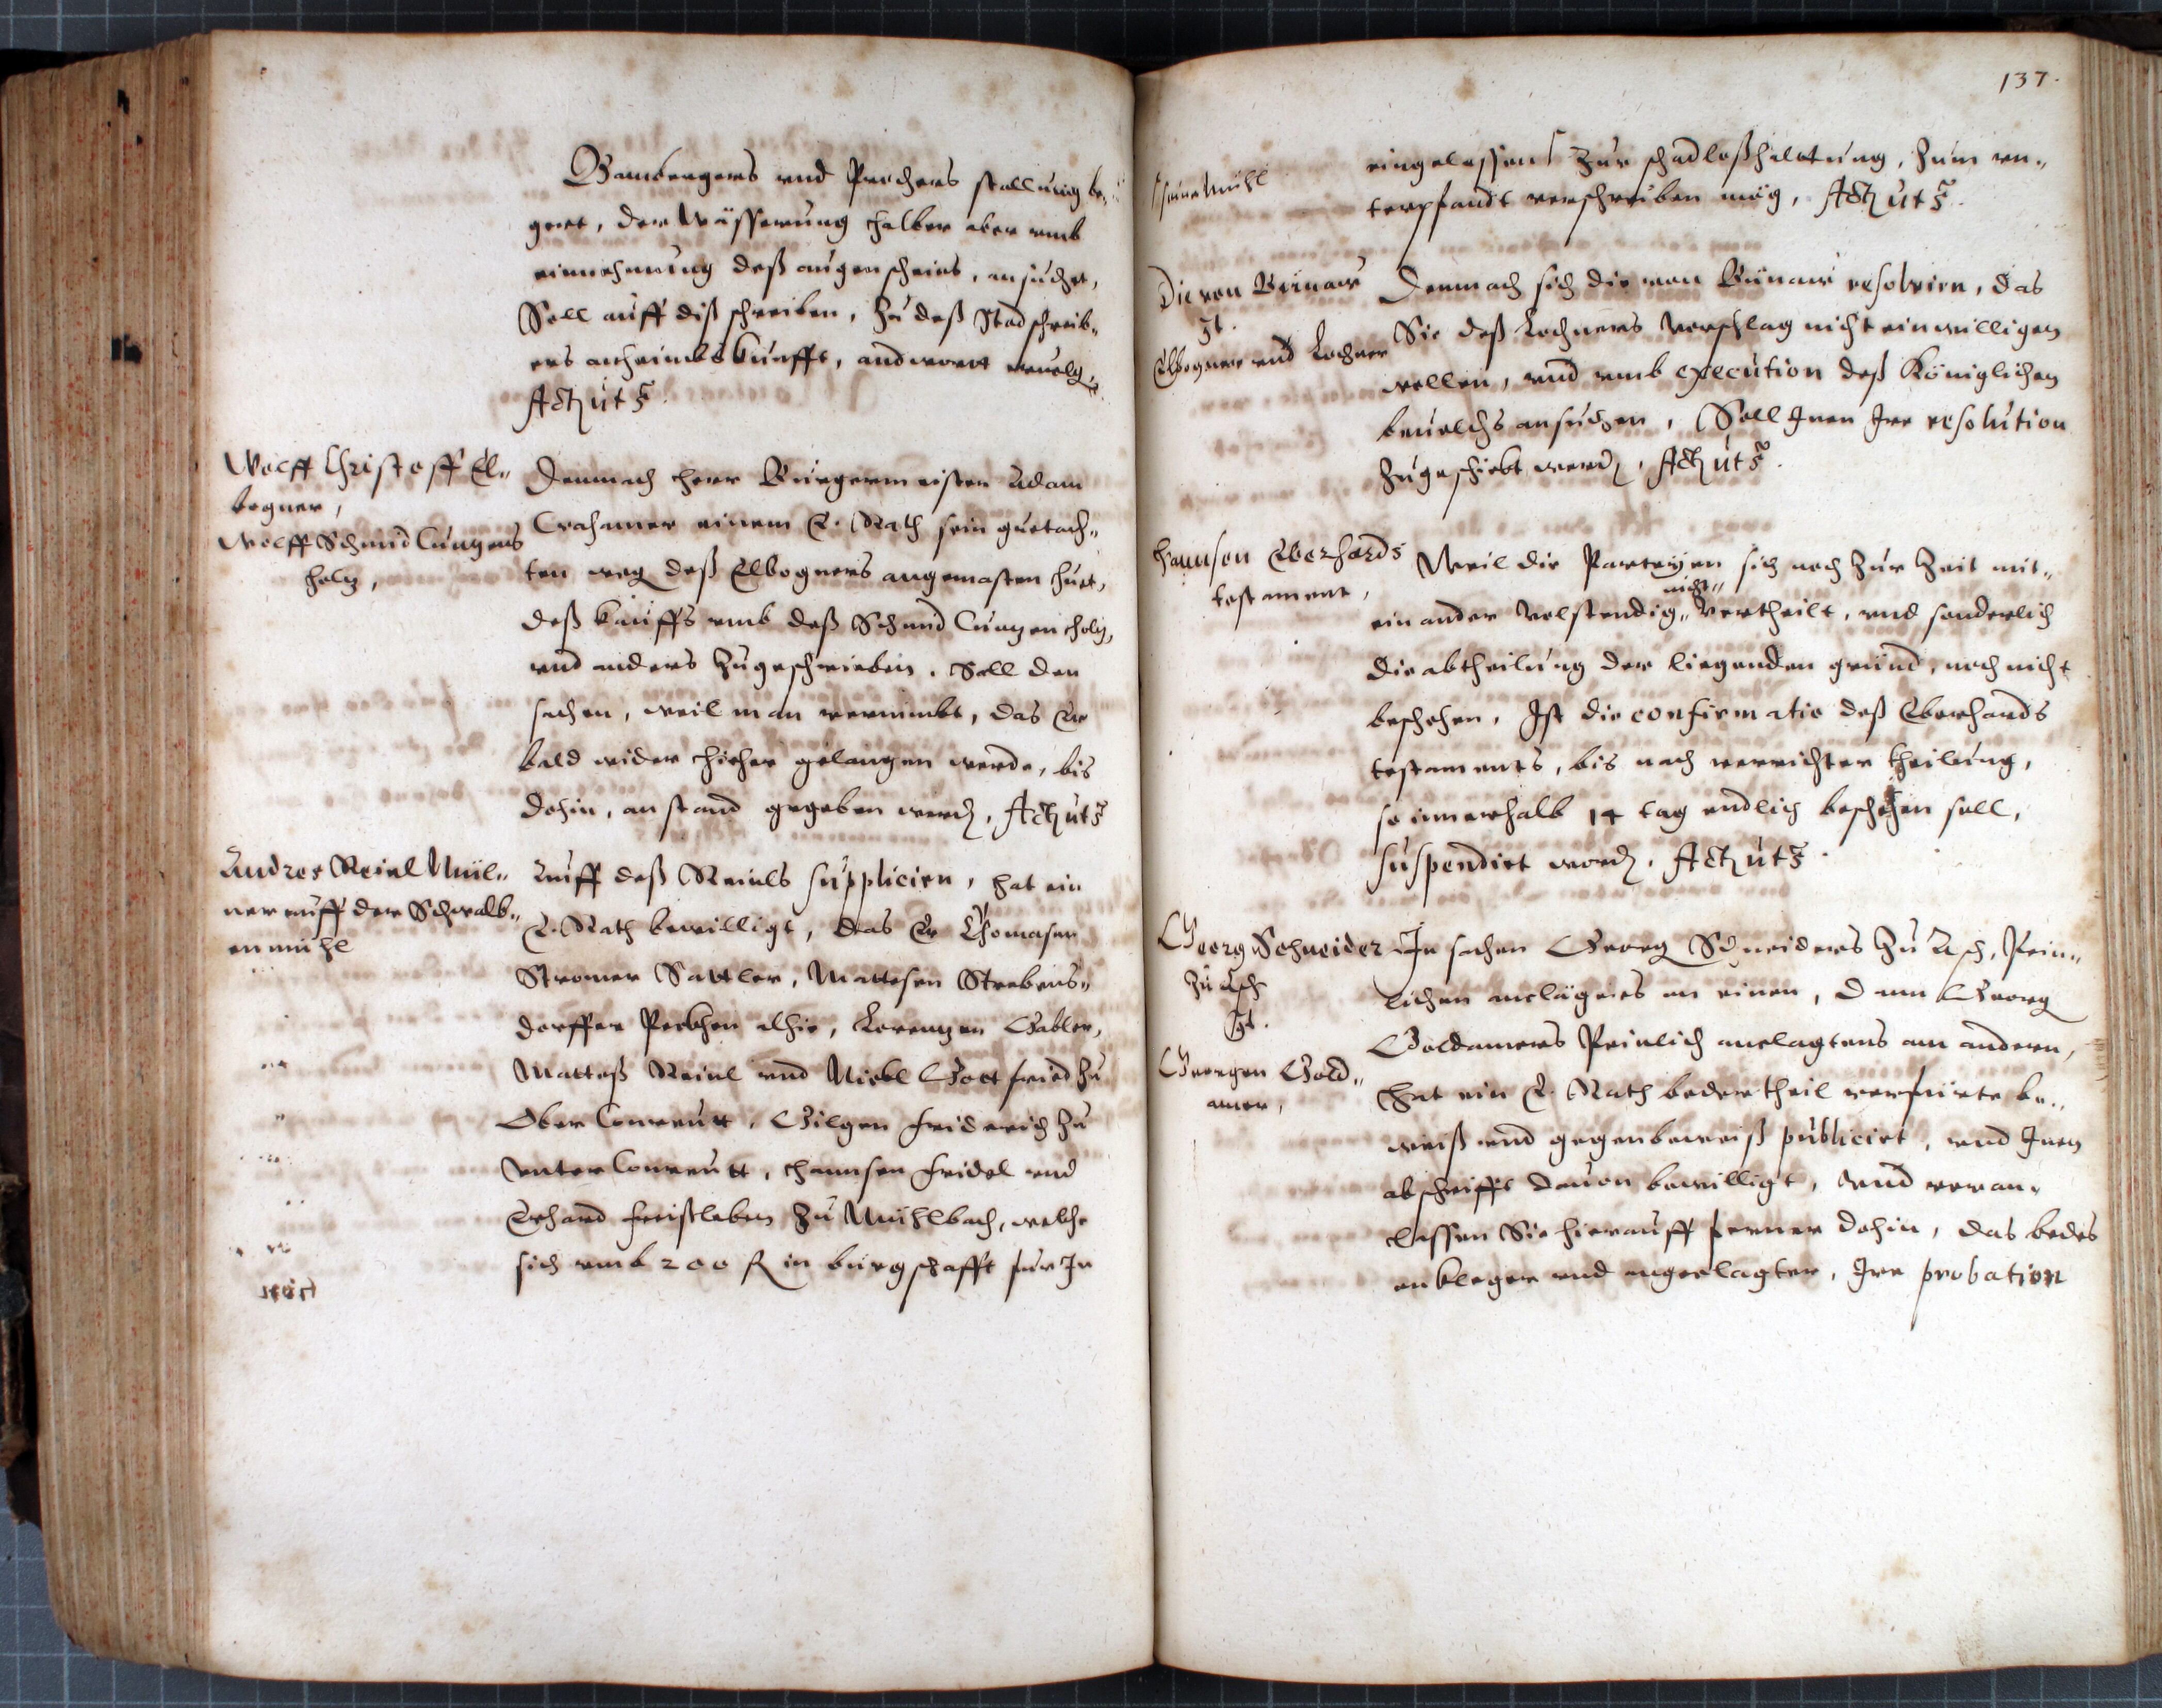 Bambergers vnd Prechers stallung be„
gert, der Wässerung halber aber vmb
einnehmung deß augenscheins, ansuchet,
Soll auff diß schreiben, zu deß Stadschreib„
ers anheimbskunfft, andwort
Act ut s.
Wolff Christoff El„
bogner,
Wolff Schmid Cungens
holz,
Demnach herr Burgermeister Adam
Crahamer einem E. Rath sein guetach„
ten weg deß Elbogners angemasten huet,
deß kauffs vmb deß Schmid Cungen holz,
vnd anders zugeschrieben. Soll den
sachen, weil man vernimbt, das Er
bald wider hieher gelangen werde, bis
dahin, anstand gegeben werden, Act ut s
Andres Reinl Mül„
ner auff der Schwalb„
enmühl
Auff deß Reinls suppliciren, hat ein
E. Rath bewilligt, das Er Thomasen
Stromer Sattler, Mattesen Strebens„
dorffer Pecken alhie, Lorenzen Gabler,
Matteß Reinl vnd Nickl Gottfried zu
Ober Conreutt, Gilgen Friderich zu
vnter Conreutt, hannsen Fridel vnd
Erhard Freißleben zu Mühlbach, welche
sich vmb 200 fl in burgschafft fur In
137.
seine Mühl
eingelassen zur schadloßhaltung, zum vn„
terpfandt verschreiben mög, Act ut s.
Die von Bünaw
Ct.
Elbogner vnd Lochner
Demnach sich die von Bünaw resolvirn, das
Sie deß Lochners Vorschlag nicht einwilligen
wollen, vnd vmb execution deß Königlichen
beuelchs ansuchen, Soll Inen Ire resolution
zugeschickt werden, Act ut s.
Hannsen Eberhards
testament,
Weil die Parteyen sich noch zur Zeit mit„
einander volstendig„ nicht„ vertheilt, vnd sonderlich
die abtheilung der liegenden gründ, noch nicht
beschehen, Ist die confirmatio deß Eberhards
testaments, bis nach verrichter theilung,
so innerhalb 14 tag endlich beschehen soll,
suspendirt worden. Act ut s.
Georg Schneider
zu Asch
Ct.
Georgen Gold„
amer,
In sachen Georg Schneiders zu Asch, Pein„
lichen anclägers an einen, dann Georg
Goldamers Peinlich anclagtens am andern,
Hat ein E. Rath beder theil verfürte be„
weiß vnd gegenbeweiß publicirt, vnd Inen
abschrifft dauon bewilligt, vnd veran„
lassen Sie hierauff ferner dahin, das bedes
ankleger vnd angeclagter, Ire probation